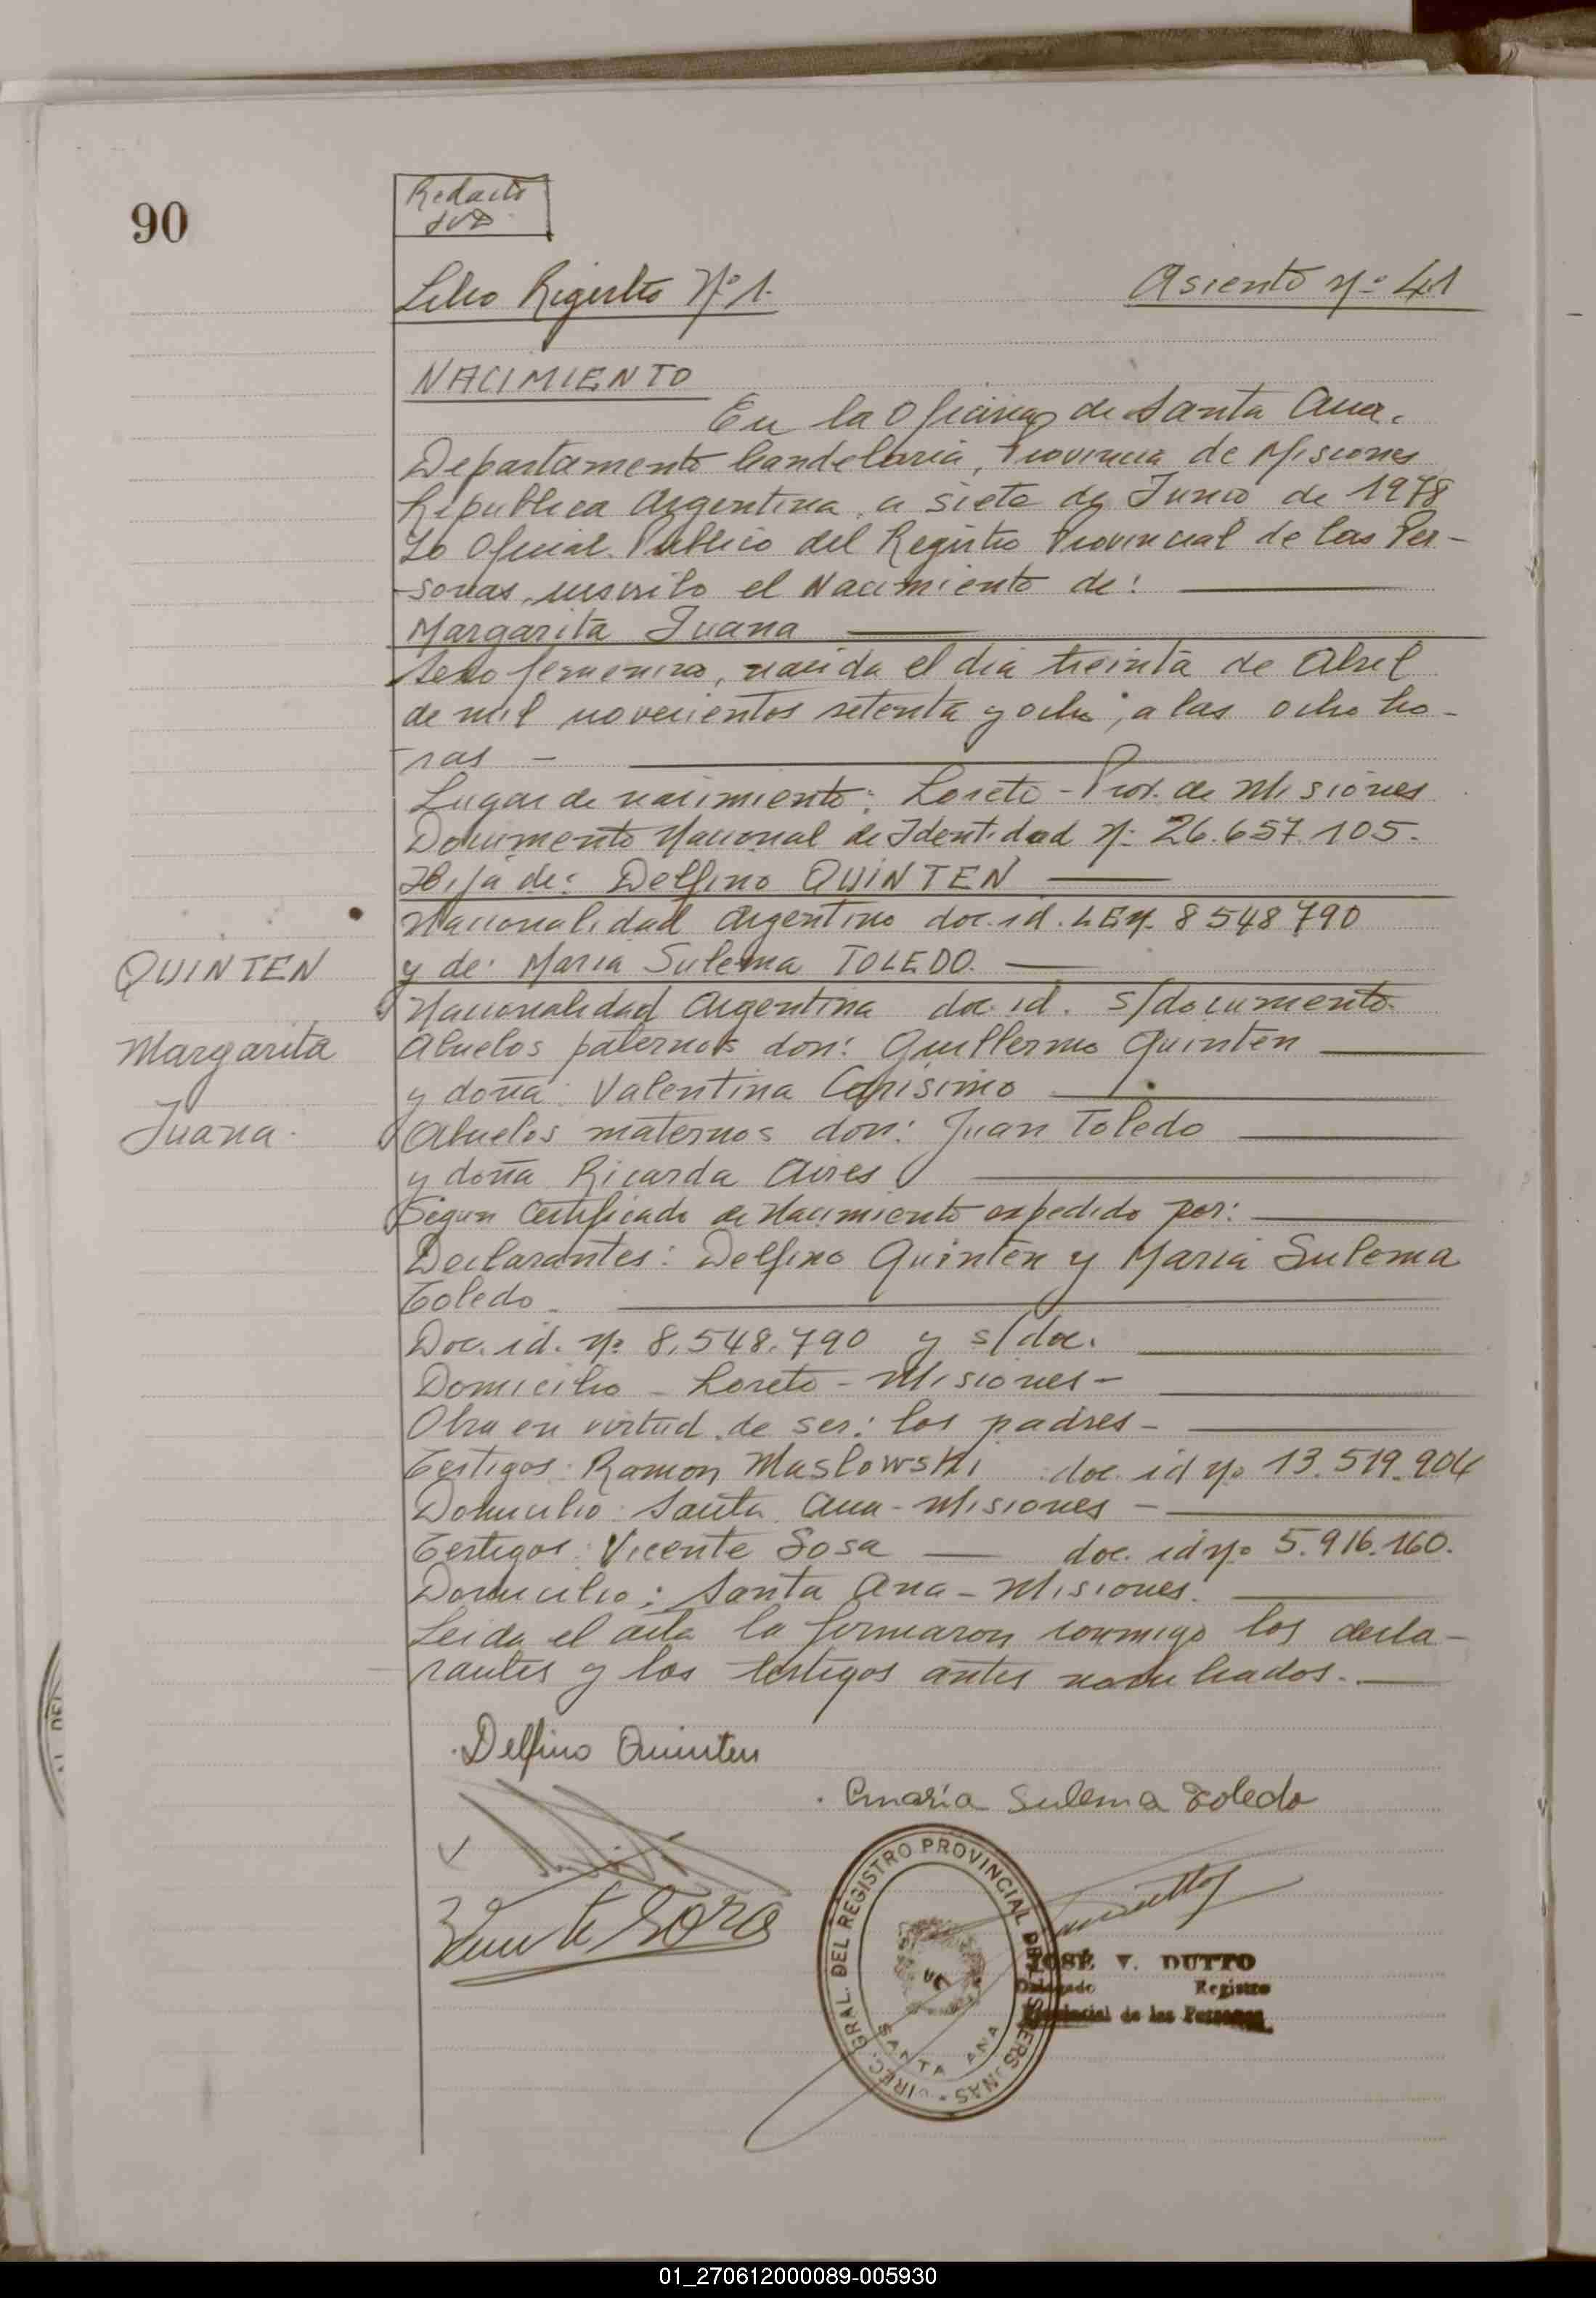 90
Redacto
JVD
Libro Registro Nº 1.
Asiento Nº 41
NACIMIENTO
En la Oficina de Santa Ana.
Departamento Candelaria, Provincia de Misiones
Republica Argentina, a siete de Junio de 1978
Yo Oficial Publico del Registro Provincial de las Per-
-sonas, inscribo el Nacimiento de:
Margarita Juana
Sexo femenino, nacida el dia treinta de Abril
de mil novecientos setenta y ocho, a las ocho ho-
-ras -
Lugar de nacimiento: Loreto - Prov. de Misiones
Documento Nacional de Identidad Nº 26.657.105.
Hija de: Delfino QUINTEN
Nacionalidad Argentino doc. id. LE Nº 8548790
y de: Maria Sulema TOLEDO.
Nacionalidad Argentina doc. id. s/documento.
Abuelos paternos don: Guillermo Quinten
y doña: Valentina Carisimo
Abuelos maternos don: Juan Toledo
y doña Ricarda Aires
Segun Certificado de Nacimiento expedido por:
Declarantes: Delfino Quinten y Maria Sulema
Toledo.
Doc. id. Nº 8.548.790 y s/doc.
Domicilio - Loreto - Misiones -
Obra en virtud de ser: los padres -
Testigos: Ramon Maslowski doc. id Nº 13.519.904
Domicilio: Santa Ana - Misiones -
Testigos: Vicente Sosa doc. id Nº 5.916.160.
Domicilio: Santa Ana - Misiones.
Leida el acta la firmaron conmigo los decla-
rantes y los testigos antes nombrados.
QUINTEN
Margarita
Juana.
Delfino Quinten
Maria Sulema Toledo
Vicente Sosa
DIREC. GRAL. DEL REGISTRO PROVINCIAL DE LAS PERSONAS
SANTA ANA
JOSÉ V. DUTTO
Delegado Registro
Provincial de las Personas
01_270612000089-005930